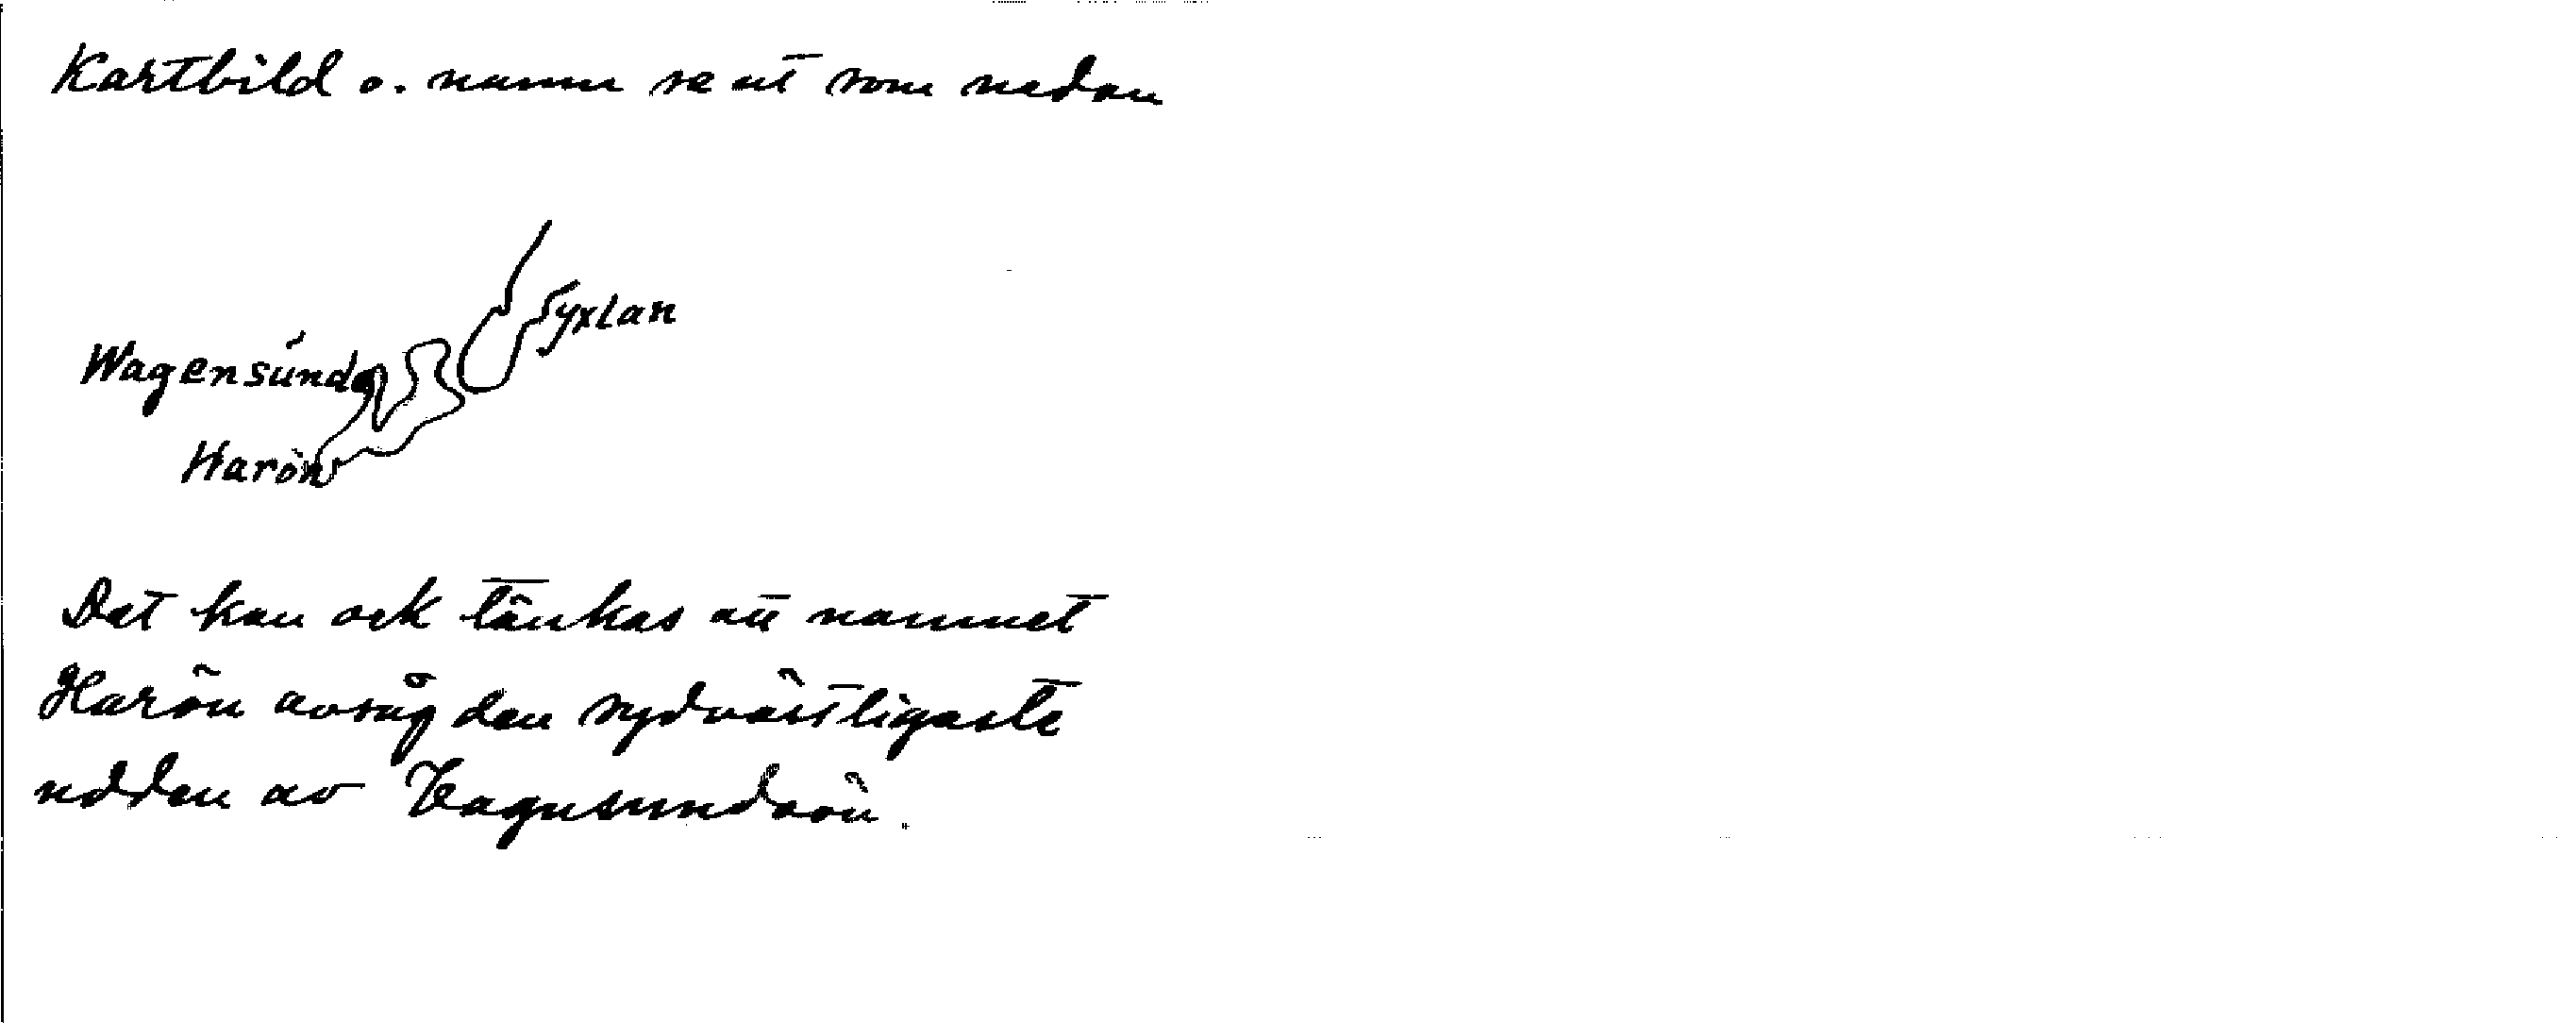 Kartbild o. namn se ut som nedan
Yxlan
Wagensúnda
Harön
Det kan ock tänkas att namnet
Harön avsåg den sydvästligaste
udden av Vagnsundsön.